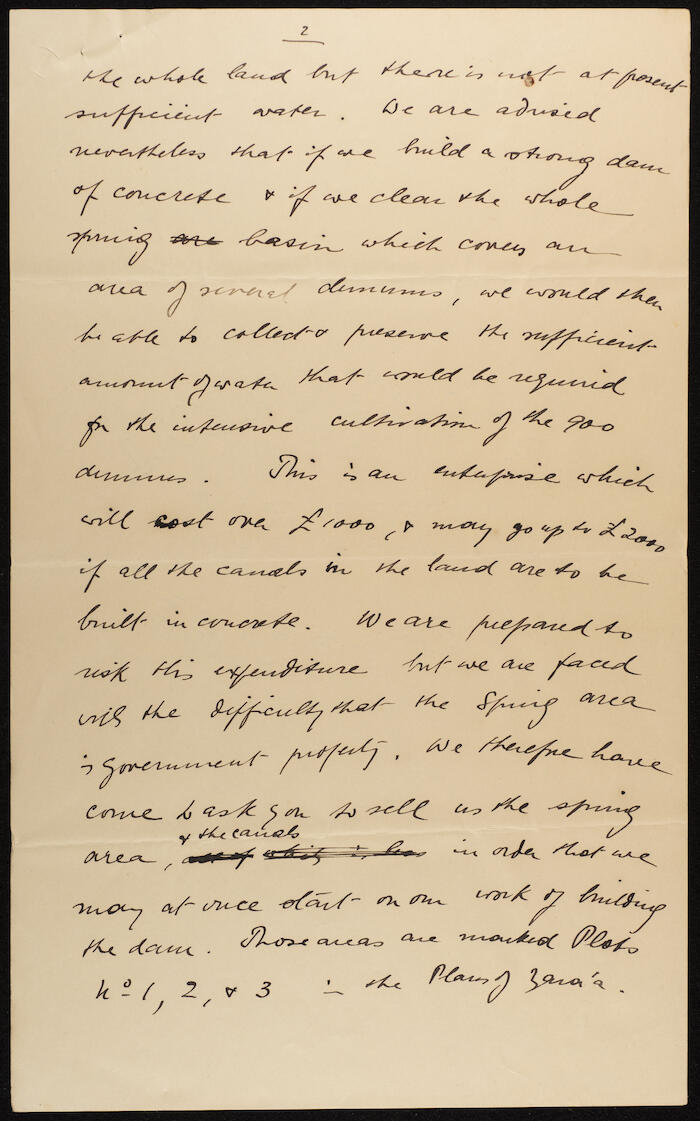 2
the whole land but there is not at present
sufficient water. We are advised
nevertheless that if we build a strong dam
of concrete & if we clear the whole
spring are basin which covers an
area of several dunums, we would then
be able to collect & preserve the sufficient
amount of water that would be required
for the intensive cultivation of the 900
dunums. This is an enterprise which
will cost over £1000, & may go up to £2000
if all the canals in the land are to be
built in concrete. We are prepared to
risk this expenditure but we are faced
with the difficulty that the Spring area
is government property. We therefore have
come to ask you to sell us the spring
& the canals
area, in order that we
may at once start on our work of building
the dam. Those areas are marked Plots
No 1, 2, & 3 in the Plans of Zara'a.